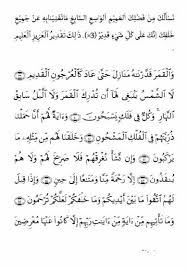 نَسْأَلُكَ مِنْ فَضْلِكَ الْعَمِيْمِ الْوَاسِعِ السَّابِغِ مَا تُغْنِيْنَا بِهِ عَنْ جَمِيْعِ
خَلْقِكَ إِنَّكَ عَلَى كُلِّ شَيْءٍ قَدِيْرٌ (3×)، ذَلِكَ تَقْدِيرُ الْعَزِيزِ الْعَلِيمِ
وَالْقَمَرَ قَدَّرْنَاهُ مَنَازِلَ حَتَّى عَادَ كَالْعُرْجُونِ الْقَدِيمِ
لَا الشَّمْسُ يَنْبَغِي لَهَا أَنْ تُدْرِكَ الْقَمَرَ وَلَا الَّيْلُ سَابِقُ
النَّهَارِ وَكُلٌّ فِي فَلَكٍ يَسْبَحُونَ وَءَايَةٌ لَهُمْ أَنَّا حَمَلْنَا
ذُرِّيَّتَهُمْ فِي الْفُلْكِ الْمَشْحُونِ وَخَلَقْنَا لَهُمْ مِنْ مِثْلِهِ مَا
يَرْكَبُونَ وَإِنْ نَشَأْ نُغْرِقْهُمْ فَلَا صَرِيخَ لَهُمْ وَلَا هُمْ
يُنْقَذُونَ إِلَّا رَحْمَةً مِنَّا وَمَتَاعًا إِلَى حِينٍ وَإِذَا قِيلَ
لَهُمُ اتَّقُوا مَا بَيْنَ أَيْدِيكُمْ وَمَا خَلْفَكُمْ لَعَلَّكُمْ تُرْحَمُونَ
وَمَا تَأْتِيهِمْ مِنْ ءَايَةٍ مِنْ ءَايَاتِ رَبِّهِمْ إِلَّا كَانُوا عَنْهَا مُعْرِضِينَ